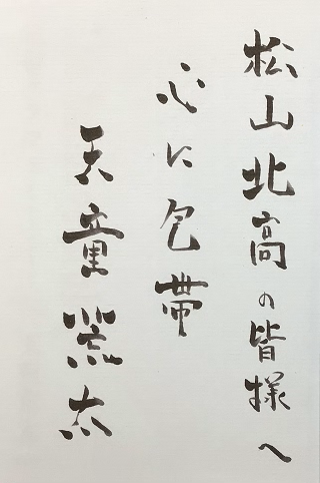 松山北高の皆様へ
心に包帯
天童荒太